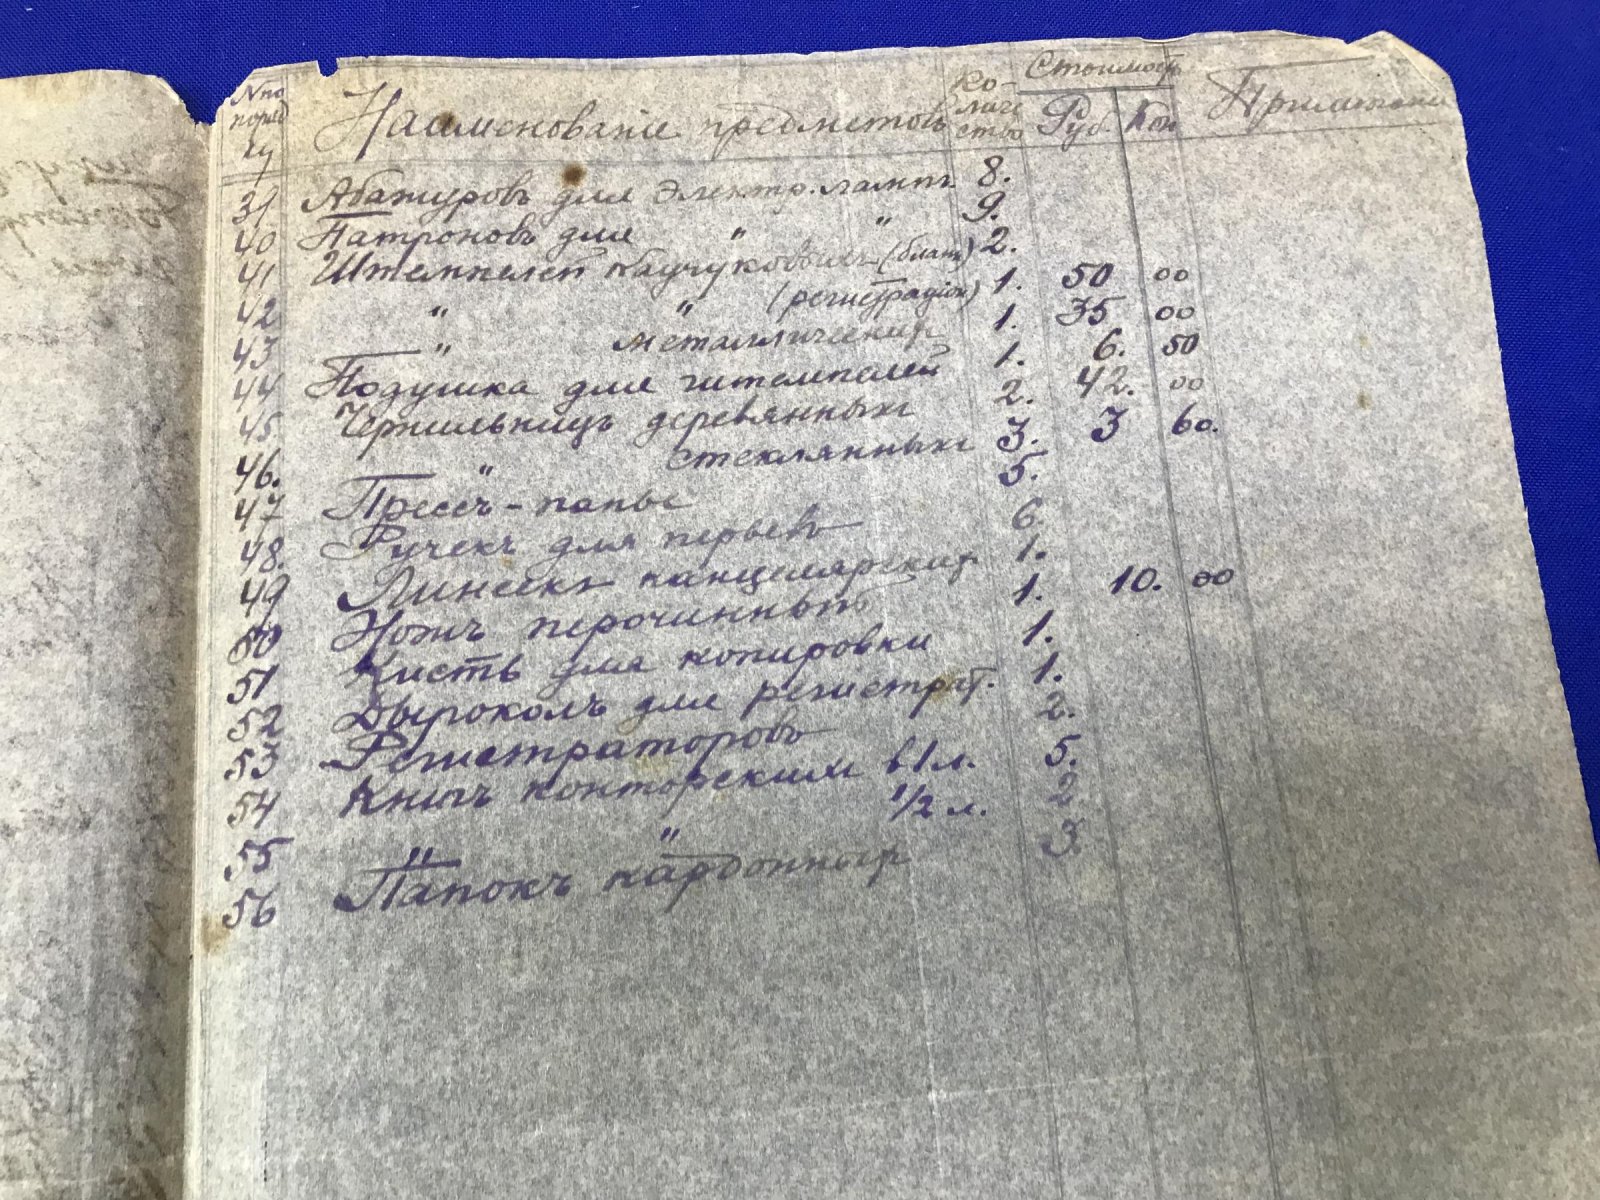 № по поряд ку Наименованіе предметовъ Ко- личе ство Стоимость Руб. Коп Примѣчаніе
39 Абажуровъ для электр. лампъ. 8.
40 Патроновъ для " " 9.
41 Штемпелей каучуковыхъ (бланк) 2.
42 " " (регистраціон) 1. 50 00
43 " металлическихъ 1. 35 00
44 Подушка для штемпелей 1. 6. 50
45 Чернильницъ деревянныхъ 2. 42. 00
46. " стеклянныхъ 3. 3 60.
47 Прессъ-папье 5.
48. Ручекъ для перьевъ 6
49 Линеекъ канцелярскихъ 1.
50 Ножъ перочинный 1. 10. 00
51 Кисть для копировки 1.
52 Дыроколъ для регистрат. 1.
53 Регистраторовъ 2.
54 Книгъ конторскихъ в 1 л. 5.
55 " " 1/2 л. 2
56 Папокъ кардонныхъ 3.